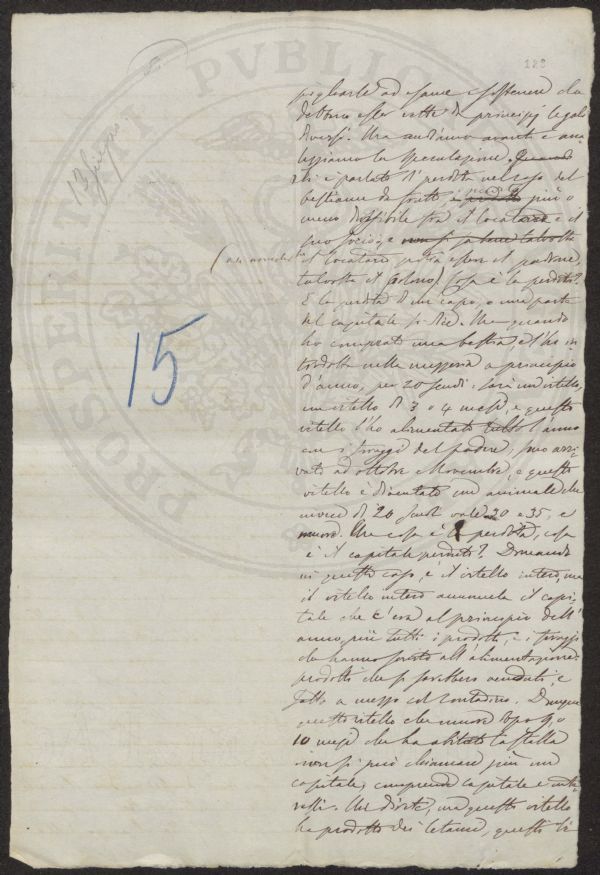 188
13 giugno
15
pigliarle ad esame e sostenere che
debbono esser rette da principj legali
diversi. Ma andiamo avanti e
la speculazione. Quando
si è parlato di perdita nel caso del
bestiame da frutto, è più o
meno divisibile fra il locatario e il
suo socio, e non si sa bene talvolta
(
il locatario potrà esser il padrone
talvolta il colono) cosa è la perdita?
È la perdita di un capo, o una parte
del capitale si dice. Ma quando
ho comprato una bestia, e l'ho in
trodotta nella mezzeria a principio
d'anno, per 20 scudi: sarà un vitello,
un vitello di 3 o 4 mesi, e questo
vitello l'ho alimentato tutto l'anno
con i foraggi del podere, sono arri-
vato ad ottobre e Novembre, e questo
vitello è diventato un animale che
invece di 20 scudi vale 30 e 35, e
muore. Ma cosa è la perdita, cosa
è il capitale perduto? Domando
in questo caso, è il vitello intero, ma
il vitello intero annunzia il capi-
tale che c'era al principio dell'
anno, più tutti i prodotti, i foraggi
che hanno servito all'alimentazione
prodotti che si sarebbero venduti, e
fatto a mezzo col contadino. Dunque
questo vitello che muore dopo 9, o
10 mesi che ha abitato la stalla
non si può chiamare più un
capitale, comprende capitale e inte-
ressi. Mi direte, ma questo vitello
ha prodotto del letame, questo è